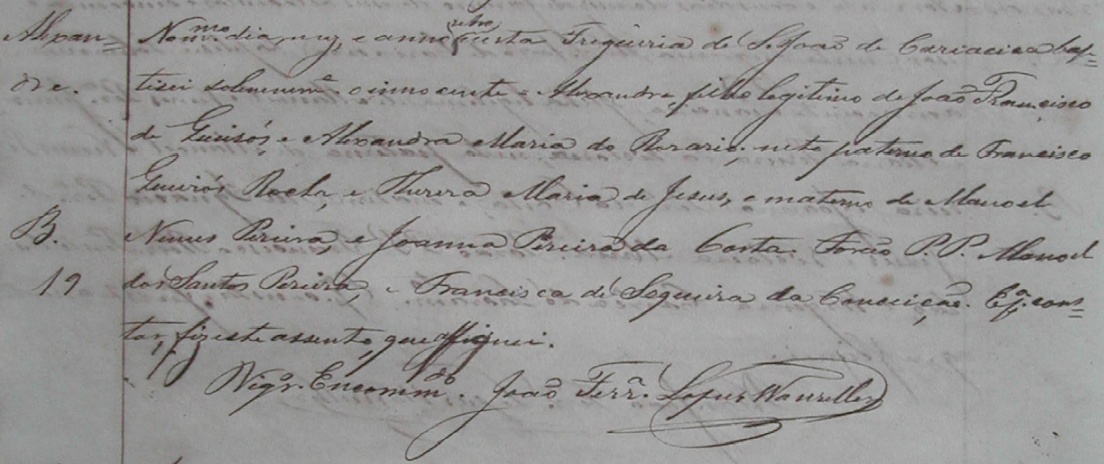 Alexan=
dre.
B.
19
No mmo dia, mez, e anno retro nesta Freguezia de S. João de Cariacica bap=
tizei solemnem.e o innocente = Alexandre, filho legitimo de João Francisco
de Queirós, e Alexandra Maria do Rozario; neto paterno de Francisco
Queirós Rocha, e Thereza Maria de Jesus, e materno de Manoel
Nunes Pereira, e Joanna Pereira da Costa. Forão P.P. Manoel
dos Santos Pereira, e Francisca de Sequeira da Conceição. E p.a cons=
tar, fiz este assento, que assignei.
Vigr.o Encomm.do João Ferr.a Lopes Wanzeller